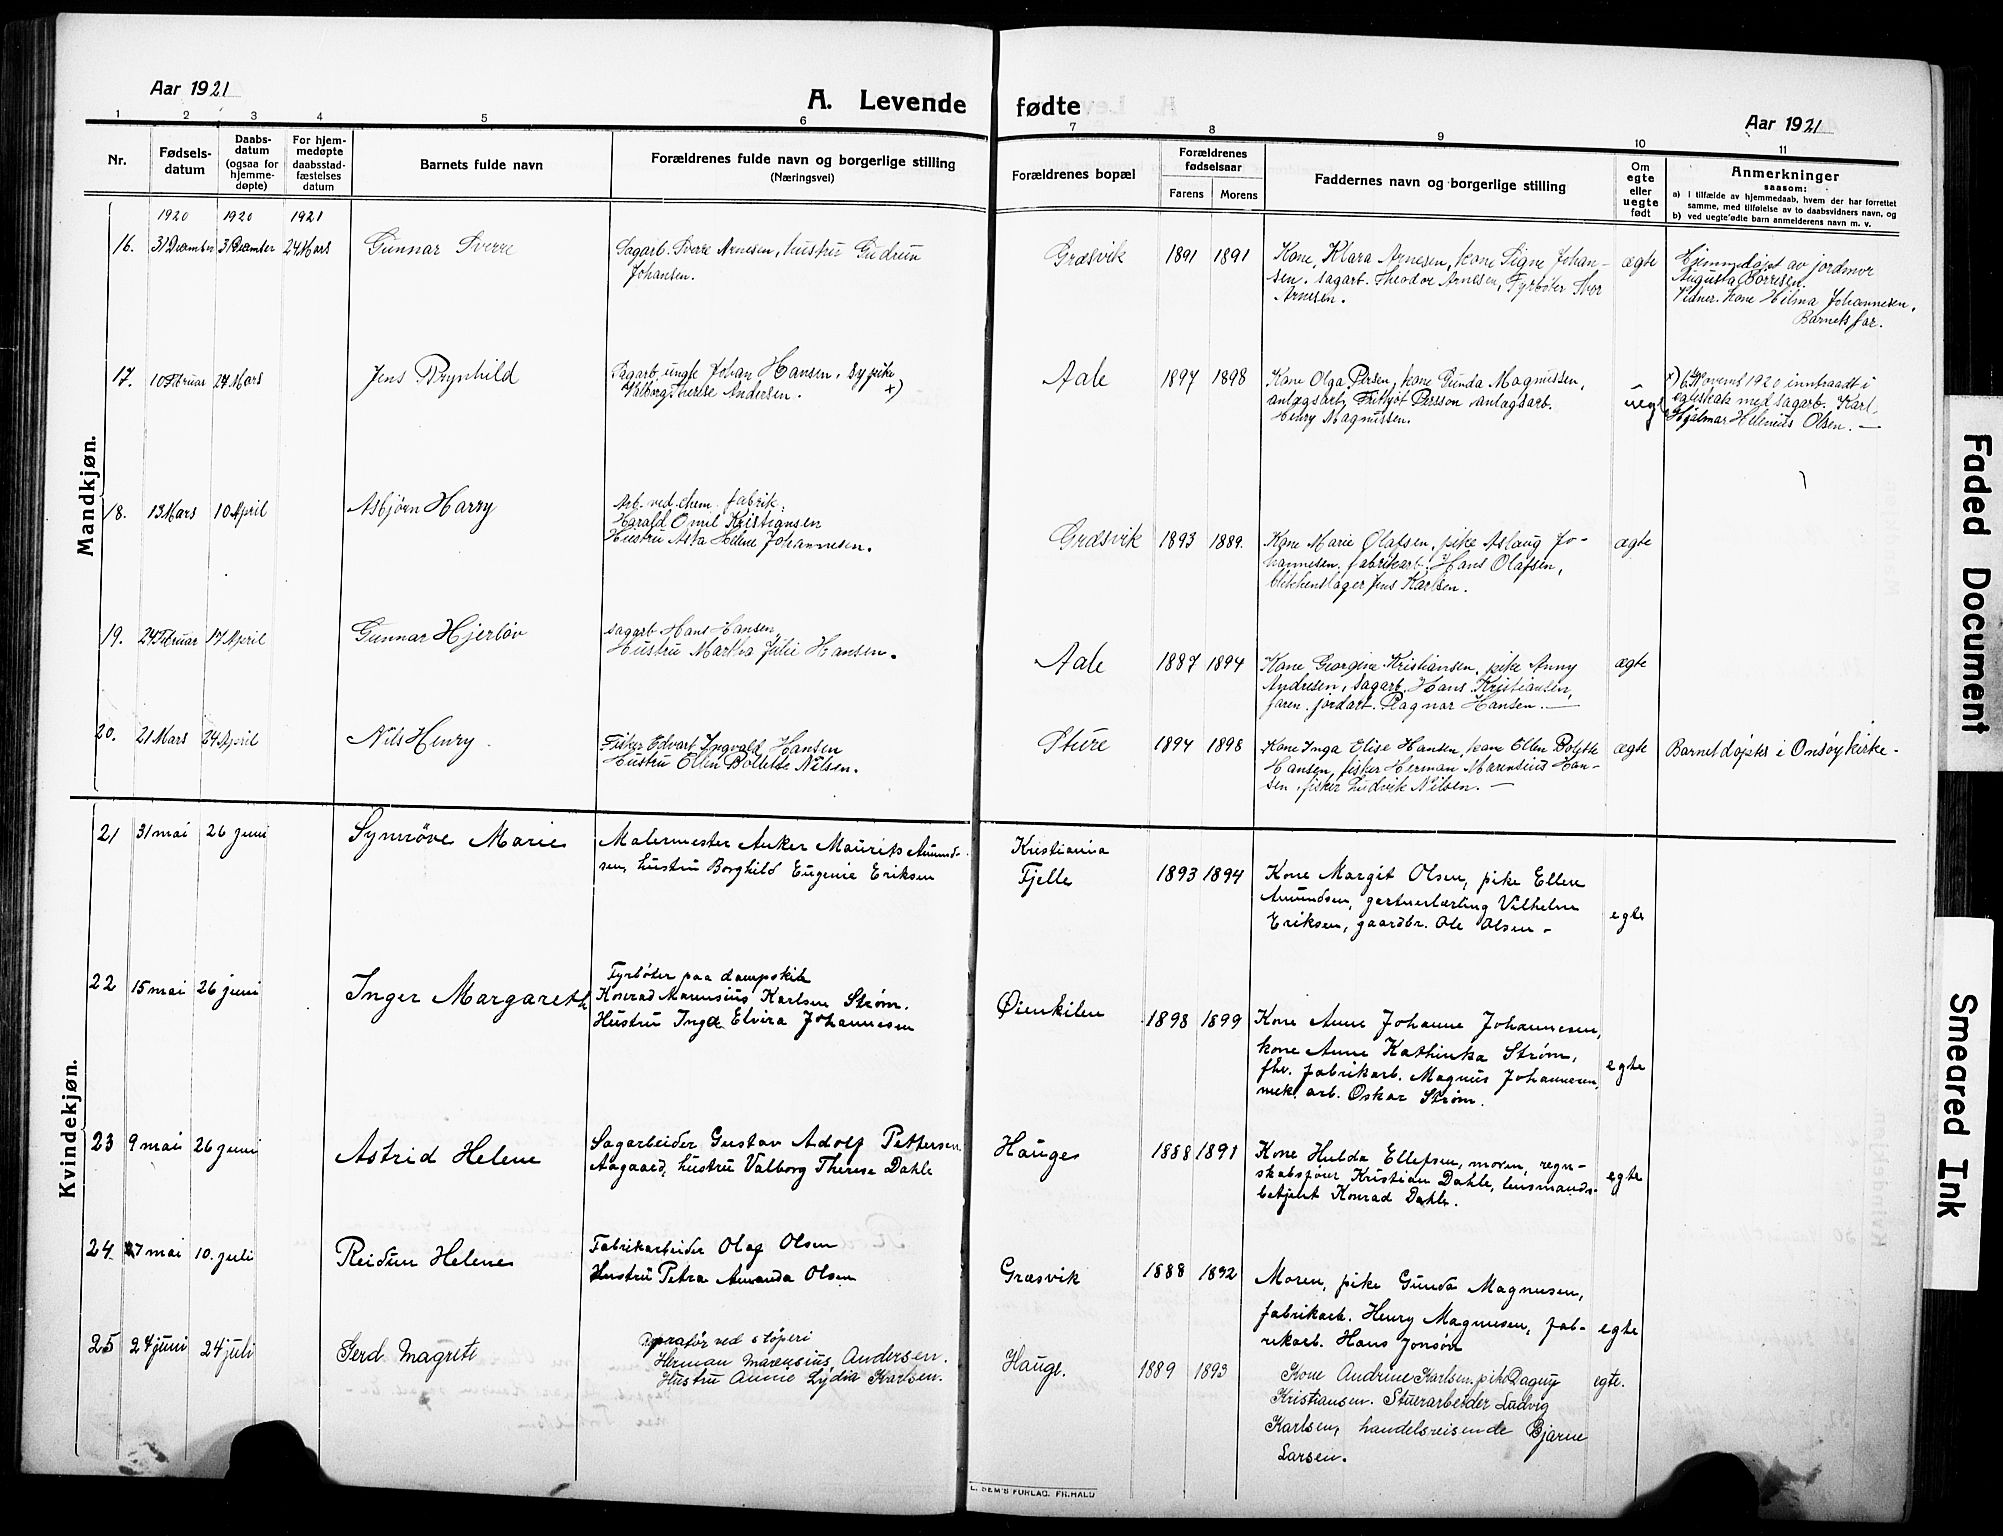 Aar 1921
A. Levende fødte
Aar 1921
1 2 3 4 5 6 7 8 9 10 11
Nr.
Fødsels-
datum
Daabs-
datum
(ogsaa for
hjemme-
døpte)
For hjem-
medøpte
daabsstad-
fæstelses
datum
Barnets fulde navn
Forældrenes fulde navn og borgerlige stilling
(Næringsvei)
Forældrenes bopæl
Forældrenes
fødselsaar
Farens Morens
Faddernes navn og borgerlige stilling
Om
egte
eller
uegte
født
Anmerkninger
saasom:
a) i tilfælde av hjemmedaab, hvem der har forrettet
samme, med tilføielse av to daabsvidners navn, og
b) ved uegte fødte barn anmelderens navn m. v.
Mandkjøn.
1920 1920 1921
16. 31 December 31 December 24 Mars
Gunnar Sverre
Sagarb. Sverre Arnesen, hustru Gudrun
Johansen.
Græsvik 1891 1891
Kone, Klara Arnesen, kone Signe Johan-
sen. sagarb. Theodor Arnesen, Fyrbøter
Arnesen.
ægte
Hjemmedøpt av jordmor
Augusta Børresen.
Vidner. kone Hilma Johannesen,
Barnets far.
17. 10 Februar 27 Mars
Jens Brynhild
Sagarb. ungk. Johan Hansen, sypike
Valborg Therese Andersen. x)
Aale 1897 1898
Kone Olga Persen, kone Gunda Magnussen,
anlægsarb. Fritjof Persson anlægsarb.
Henry Magnussen.
uegte
x) 6 Novemb 1920 inntraadt i
egteskab med sagarb. Karl
Hjalmar Helenius Olsen. —
18. 13 Mars 10 April
Asbjørn Harry
Arb. ved chem. fabrik,
Harald Emil Kristiansen
Hustru Asta Helene Johannesen.
Græsvik 1893 1889.
Kone Marie Olafsen, pike Aslaug Jo-
hannesen. fabrikarb. Hans Olafsen,
blikkenslager Jens Karlsen.
ægte
19. 24 Februar 17 April
Gunnar Hjerløv
Sagarb. Hans Hansen,
Hustru Martha Julie Hansen.
Aale 1887 1894
Kone Georgine Kristiansen, pike Anny
Andresen, sagarb. Hans Kristiansen,
faren. jordarb. Ragnar Hansen. —
ægte
20. 21 Mars 24 April
Nils Henry
Fisker Edvart Ingvald Hansen
Hustru Ellen Bolette Nilsen.
Sture 1894 1898
Kone Inga Elise Hansen, kone Ellen Bolette
Hansen, fisker Herman Marensius Han-
sen, fisker Ludvik Nilsen. —
ægte
Barnet døptes i Onsøy kirke -
Kvindekjøn.
21 31 mai 26 juni
Synnøve Marie
Malermester Anker Maurits Amund-
sen, hustru Borghild Eugenie Eriksen
Kristiania
Fjelle 1893 1894
Kone Margit Olsen, pike Ellen
Amundsen, gartnerlærling Vilhelm
Eriksen, gaardbr. Ole Olsen -
egte
22 15 mai 26 juni
Inger Margareth
Fyrbøter paa dampskib
Konrad Marensius Karlsen Strøm.
Hustru Inga Elvira Johannesen
Øienkilen 1898 1899
Kone Anne Johanne Johannesen,
kone Anne Kathinka Strøm,
fhv. fabrikarb. Magnus Johannesen,
mek. arb. Oskar Strøm.
egte
23 9 mai 26 juni
Astrid Helene
Sagarbeider Gustav Adolf Pettersen
Aagaard, hustru Valborg Therese Dahle
Hauge 1888 1891
Kone Hulda Ellefsen, moren, regn-
skabsfører Kristian Dahle, lensmands-
betjent Konrad Dahle.
egte
24 7 mai 10. juli
Reidun Helene
Fabrikarbeider Olaf Olsen
Hustru Petra Amanda Olsen
Græsvik 1888 1892
Moren, pike Gunda Magnusen,
fabrikarb. Henry Magnusen, fab-
rikarb. Hans Jonsøn
egte
25 24 juni 24 juli
Gerd Magrete
ved støperi
Herman Marensius, Andersen.
Hustru Annie Lydia Karlsen.
Hauge. 1889 1893
Kone Andrine Karlsen. pike Dagny
Kristiansen. Stuerarbeider Ludvig
Karlsen, handelsreisende Bjarne
Larsen.
egte.
E. SEM'S FORLAG, FR.HALD
Faded Document
Smeared Ink